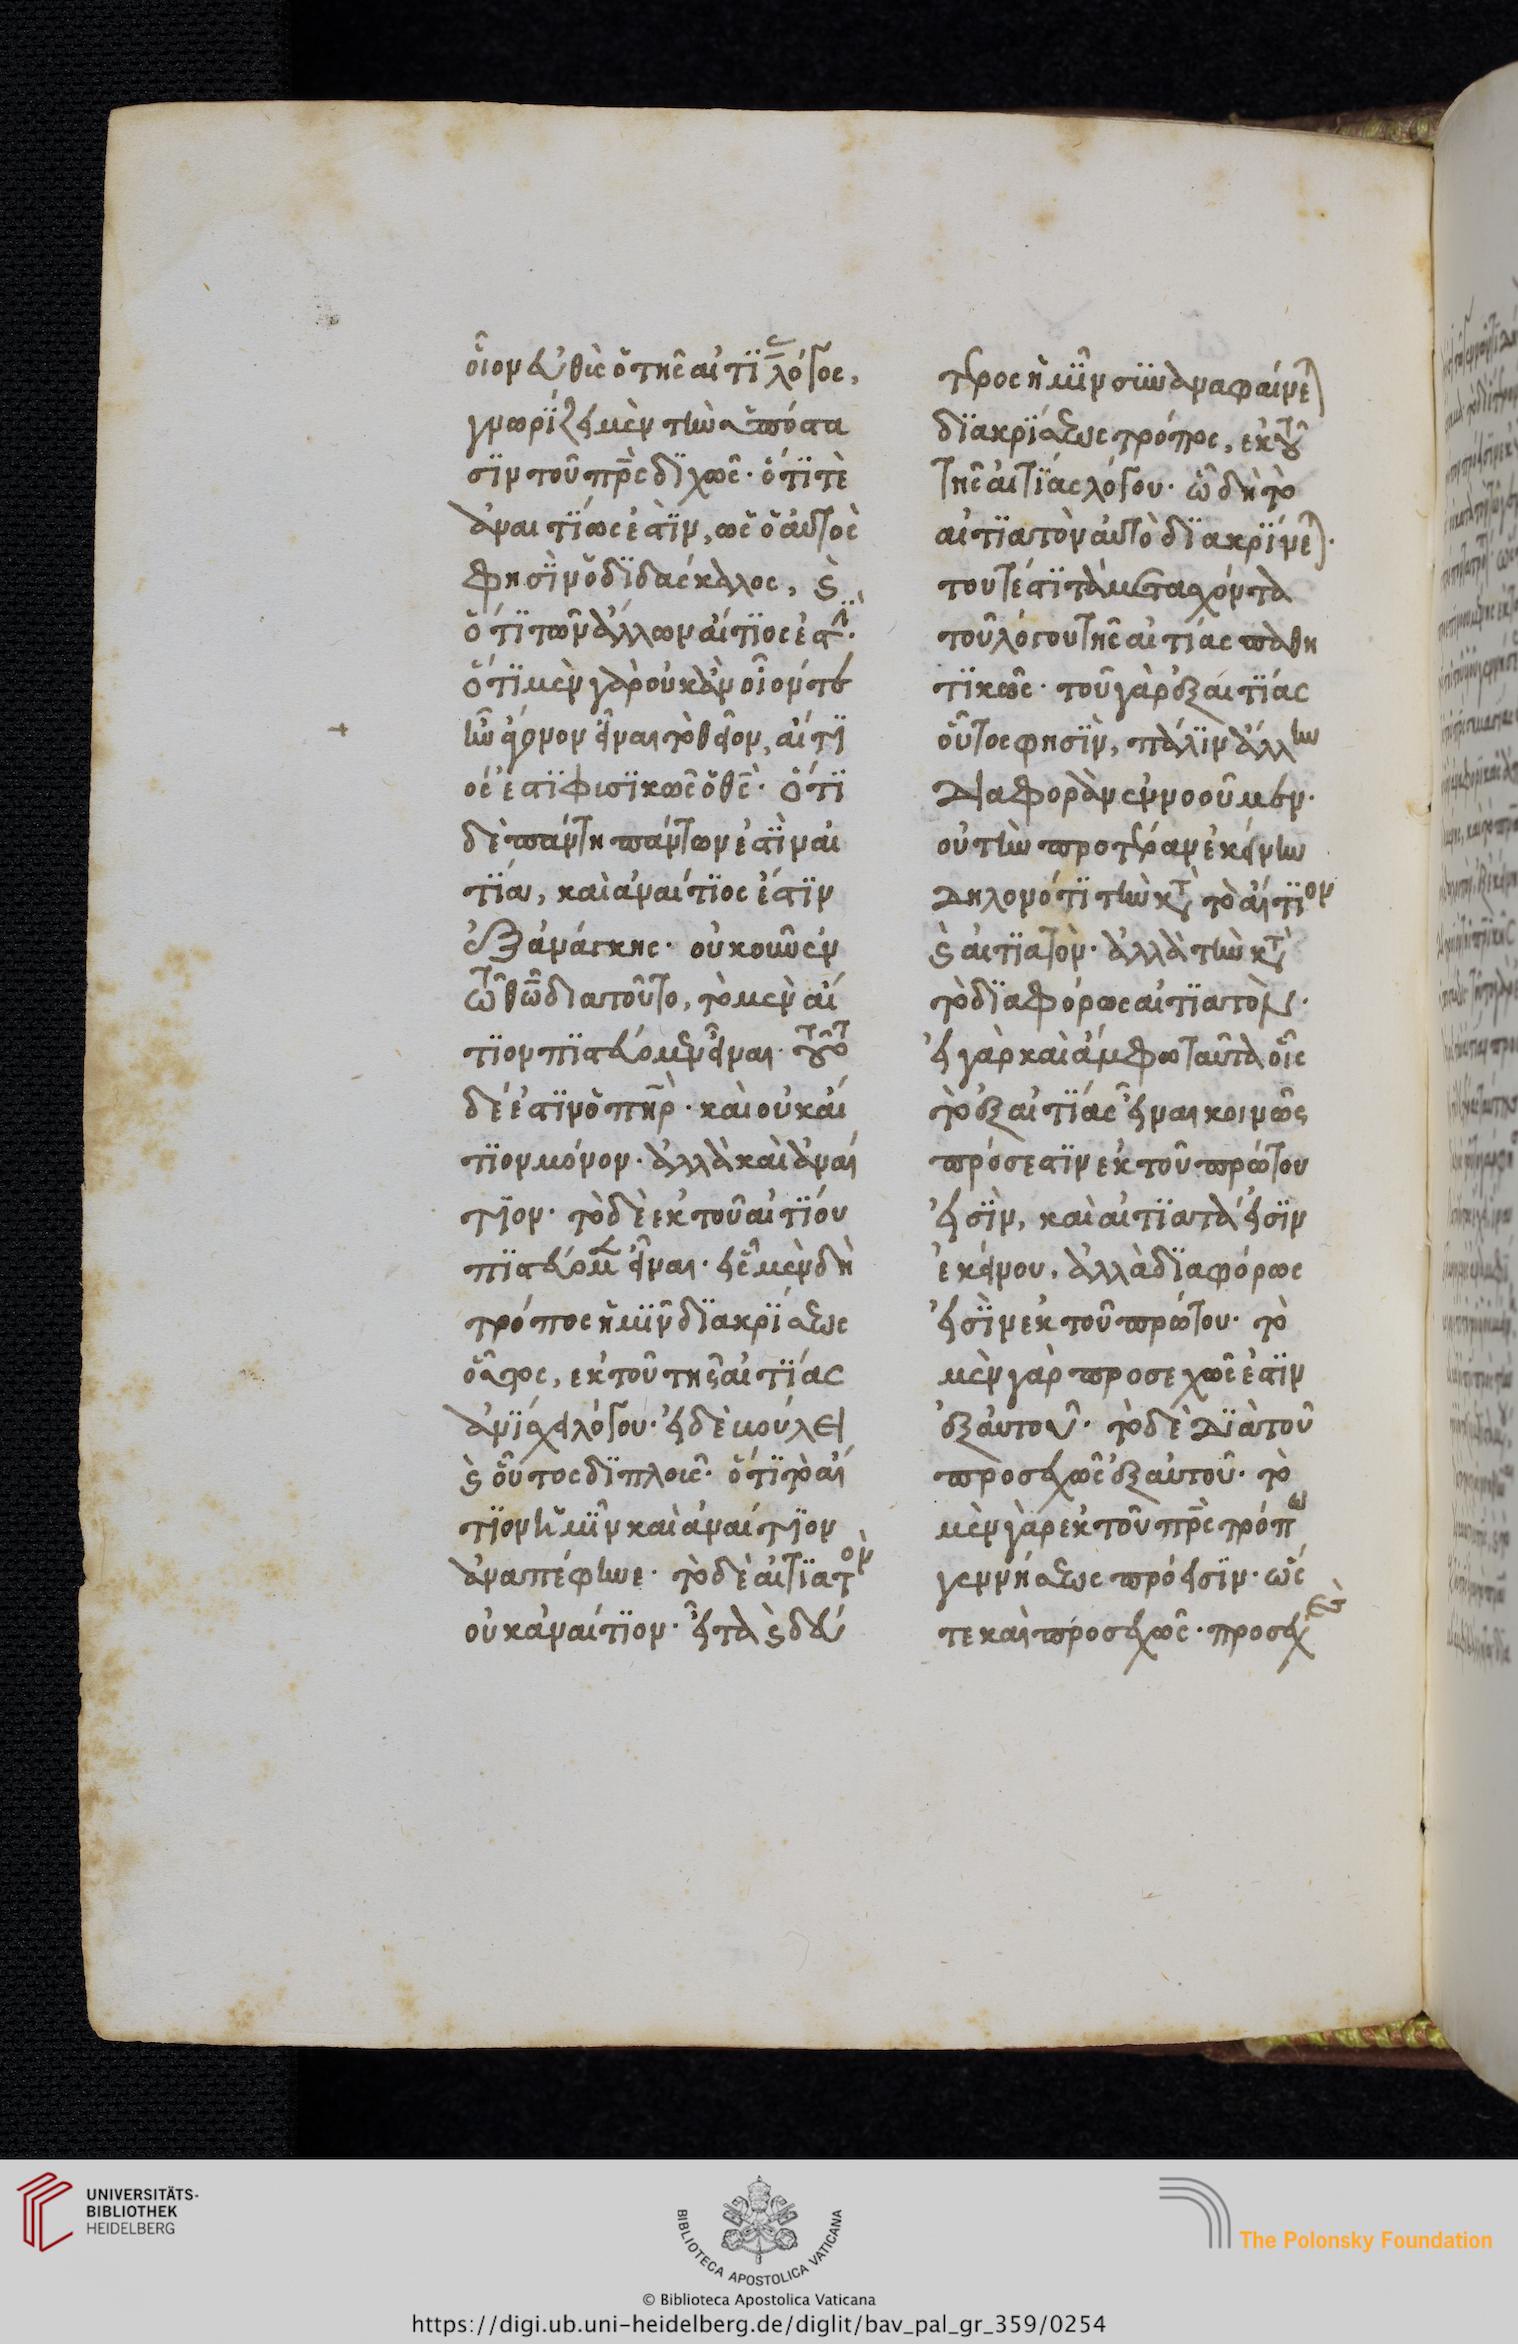 οἷον εὐθὺς ὁ τῆς αἰτί λόγος,
γνωρίζει μὲν τὴν ὑπόστα
σιν τοῦ πρς διχῶς· ὅτι τὲ
ἀναιτίως ἐστὶν, ὡς ὁ αὐτὸς
φησὶν ὁ διδάσκαλος, καὶ
ὅτι τῶν ἄλλων αἴτιος ἐστι·
ὅτι μὲν γὰρ οὐκ ἂν οἷόν τε
εἶναι τὸ θεῖον, αἴτι
ός ἐστι φυσικῶς ὁ θς· ὅτι
δὲ πάντη πάντων ἐστὶν αἰ
τία, καὶ ἀναίτιος ἐστιν
ἐξ ἀνάγκης· οὐκοῦν ἐν
τῶ θῶ διὰ τοῦτο, τὸ μὲν αἴ
τιον πιστεύομεν εἶναι· τοῦτο
δέ ἐστιν ὁ πηρ· καὶ οὐκ αἴ
τιον μόνον· ἀλλὰ καὶ ἀναί
τιον· τὸ δὲ ἐκ τοῦ αἰτίου
πιστεύομεν εἶναι· εἷς μὲν δὴ
τρόπος ἡμῖν διακρίσεως
οὗτος, ἐκ τοῦ τῆς αἰτίας
ἀνίσχει λόγου· εἰ δὲ βούλει
καὶ οὗτος διπλοῦς· ὅτι τὸ αἴ
τιον ἡμῖν καὶ ἀναίτιον
ἀναπέφηνε· τὸ δὲ αἰτιατὸν
οὐκ ἀναίτιον· εἶτα καὶ δεύ
τερος ἡμῖν συναναφαίνε
διακρίσεως τρόπος, ἐκ τοῦ
τῆς αἰτίας λόγου· ᾧ δὴ τὸ
αἰτιατὸν αὐτὸ διακρίνε·
τουτέστι τὰ μετασχόντα
τοῦ λόγου τῆς αἰτίας παθη
τικῶς· τοῦ γὰρ ἐξ αἰτίας
οὗτος φησὶν, πάλιν ἄλλην
διαφορὰν ἐννοοῦμεν·
οὐ τὴν προτέραν ἐκείνην
δηλονότι τὴν κτ τὸ αἴτιον
καὶ αἰτιατὸν· ἀλλὰ τὴν κτ
τὸ διαφόρως αἰτιατὸν·
εἰ γὰρ καὶ ἄμφω ταῦτα οἷς
τὸ ἐξ αἰτίας εἶναι κοινῶς
πρόσεστιν ἐκ τοῦ πρώτου
εἰσὶν, καὶ αἰτιατά εἰσιν
ἐκείνου, ἀλλὰ διαφόρως
εἰσὶν ἐκ τοῦ πρώτου· τὸ
μὲν γὰρ προσεχῶς ἐστιν
ἐξ αὐτοῦ· τὸ δὲ διὰ τοῦ
προσεχῶς ἐξ αὐτοῦ· τὸ
μὲν γὰρ ἐκ τοῦ πρς τρόπω
γεννήσεως πρόεισιν· ὡς
τε καὶ προσεχῶς· προσεχὲς
UNIVERSITÄTS-
BIBLIOTHEK
HEIDELBERG
BIBLIOTECA APOSTOLICA VATICANA
The Polonsky Foundation
© Biblioteca Apostolica Vaticana
https://digi.ub.uni-heidelberg.de/diglit/bav_pal_gr_359/0254